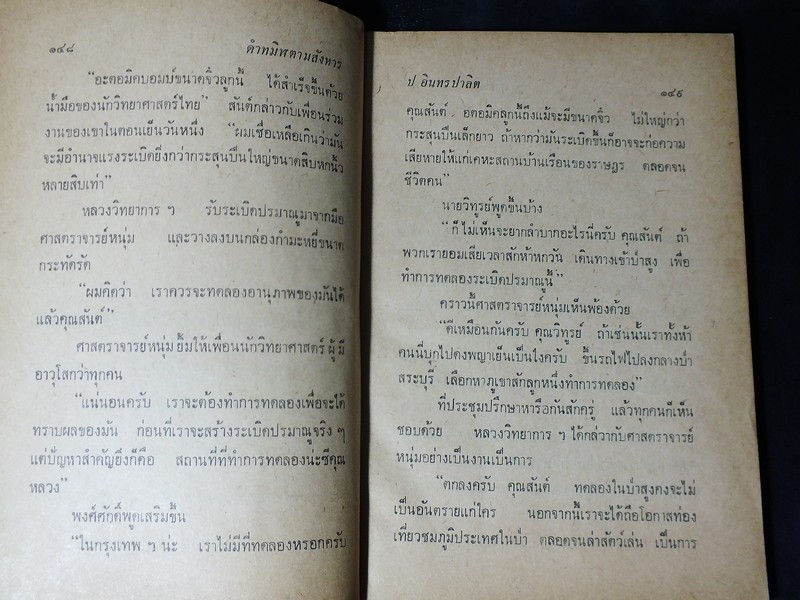 ๑๔๘ ดำทมิฬตามสังหาร
“อะตอมิคบอมบ์ขนาดจิ๋วลูกนี้ ได้สำเร็จขึ้นด้วย
น้ำมือของนักวิทยาศาสตร์ไทย” สันต์กล่าวกับเพื่อนร่วม
งานของเขาในตอนเย็นวันหนึ่ง “ผมเชื่อเหลือเกินว่ามัน
จะมีอำนาจแรงระเบิดยิ่งกว่ากระสุนปืนใหญ่ขนาดสิบหกนิ้ว
หลายสิบเท่า”
หลวงวิทยาการ ฯ รับระเบิดปรมาณูมาจากมือ
ศาสตราจารย์หนุ่ม และวางลงบนกล่องกำมะหยี่ขนาด
กระทัดรัด
“ผมคิดว่า เราควรจะทดลองอานุภาพของมันได้
แล้วคุณสันต์”
ศาสตราจารย์หนุ่มยิ้มให้เพื่อนนักวิทยาศาสตร์ ผู้มี
อาวุโสกว่าทุกคน
“แน่นอนครับ เราจะต้องทำการทดลองเพื่อจะได้
ทราบผลของมัน ก่อนที่เราจะสร้างระเบิดปรมาณูจริง ๆ
แต่ปัญหาสำคัญยิ่งก็คือ สถานที่ที่ทำการทดลองน่ะซีคุณ
หลวง”
พงศ์ศักดิ์พูดเสริมขึ้น
“ในกรุงเทพ ฯ น่ะ เราไม่มีที่ทดลองหรอกครับ
ป อินทรปาลิต ๑๔๙
คุณสันต์ อตอมิคลูกนี้ถึงแม้จะมีขนาดจิ๋ว ไม่ใหญ่กว่า
กระสุนปืนเล็กยาว ถ้าหากว่ามันระเบิดขึ้นก็อาจจะก่อความ
เสียหายให้แก่เคหะสถานบ้านเรือนของราษฎร ตลอดจน
ชีวิตคน”
นายวิทูรย์พูดขึ้นบ้าง
“ก็ไม่เห็นจะยากลำบากอะไรนี่ครับ คุณสันต์ ถ้า
พวกเรายอมเสียเวลาสักห้าหกวัน เดินทางเข้าป่าสูง เพื่อ
ทำการทดลองระเบิดปรมาณูนี้”
คราวนี้ศาสตราจารย์หนุ่มเห็นพ้องด้วย
“ดีเหมือนกันครับ คุณวิทูรย์ ถ้าเช่นนั้นเราทั้งห้า
คนนี่บุกไปดงพญาเย็นเป็นไงครับ ขึ้นรถไฟไปลงกลางป่า
สระบุรี เลือกหาภูเขาสักลูกหนึ่งทำการทดลอง”
ที่ประชุมปรึกษาหารือกันสักครู่ แล้วทุกคนก็เห็น
ชอบด้วย หลวงวิทยาการ ฯ ได้กล่าวกับศาสตราจารย์
หนุ่มอย่างเป็นงานเป็นการ
“ตกลงครับ คุณสันต์ ทดลองในป่าสูงคงจะไม่
เป็นอันตรายแก่ใคร นอกจากนี้เราจะได้ถือโอกาสท่อง
เที่ยวชมภูมิประเทศในป่า ตลอดจนล่าสัตว์เล่น เป็นการ